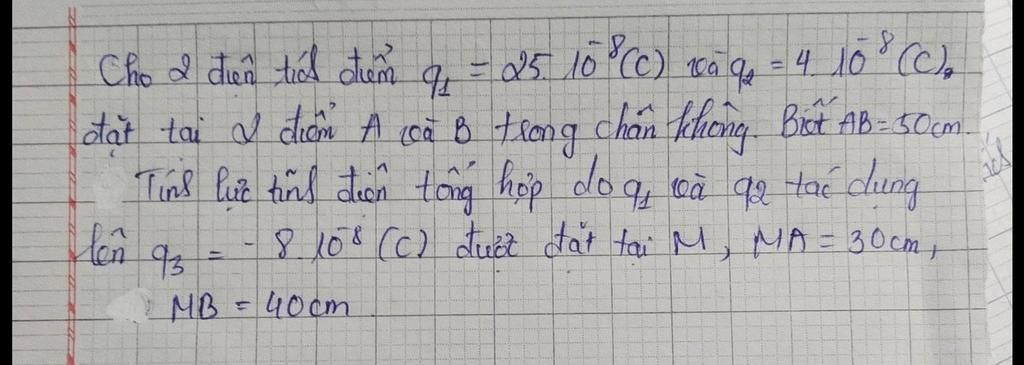 Cho 2 điện tích điểm q₁ = 25. 10⁻⁸(C) và q₂ = 4. 10⁻⁸(C).
đặt tại 2 điểm A và B trong chân không. Biết AB = 50cm.
Tính lực tĩnh điện tổng hợp do q₁ và q2 tác dụng
lên q₃ = - 8. 10⁻⁸ (C) được đặt tại M, MA = 30cm,
MB = 40cm